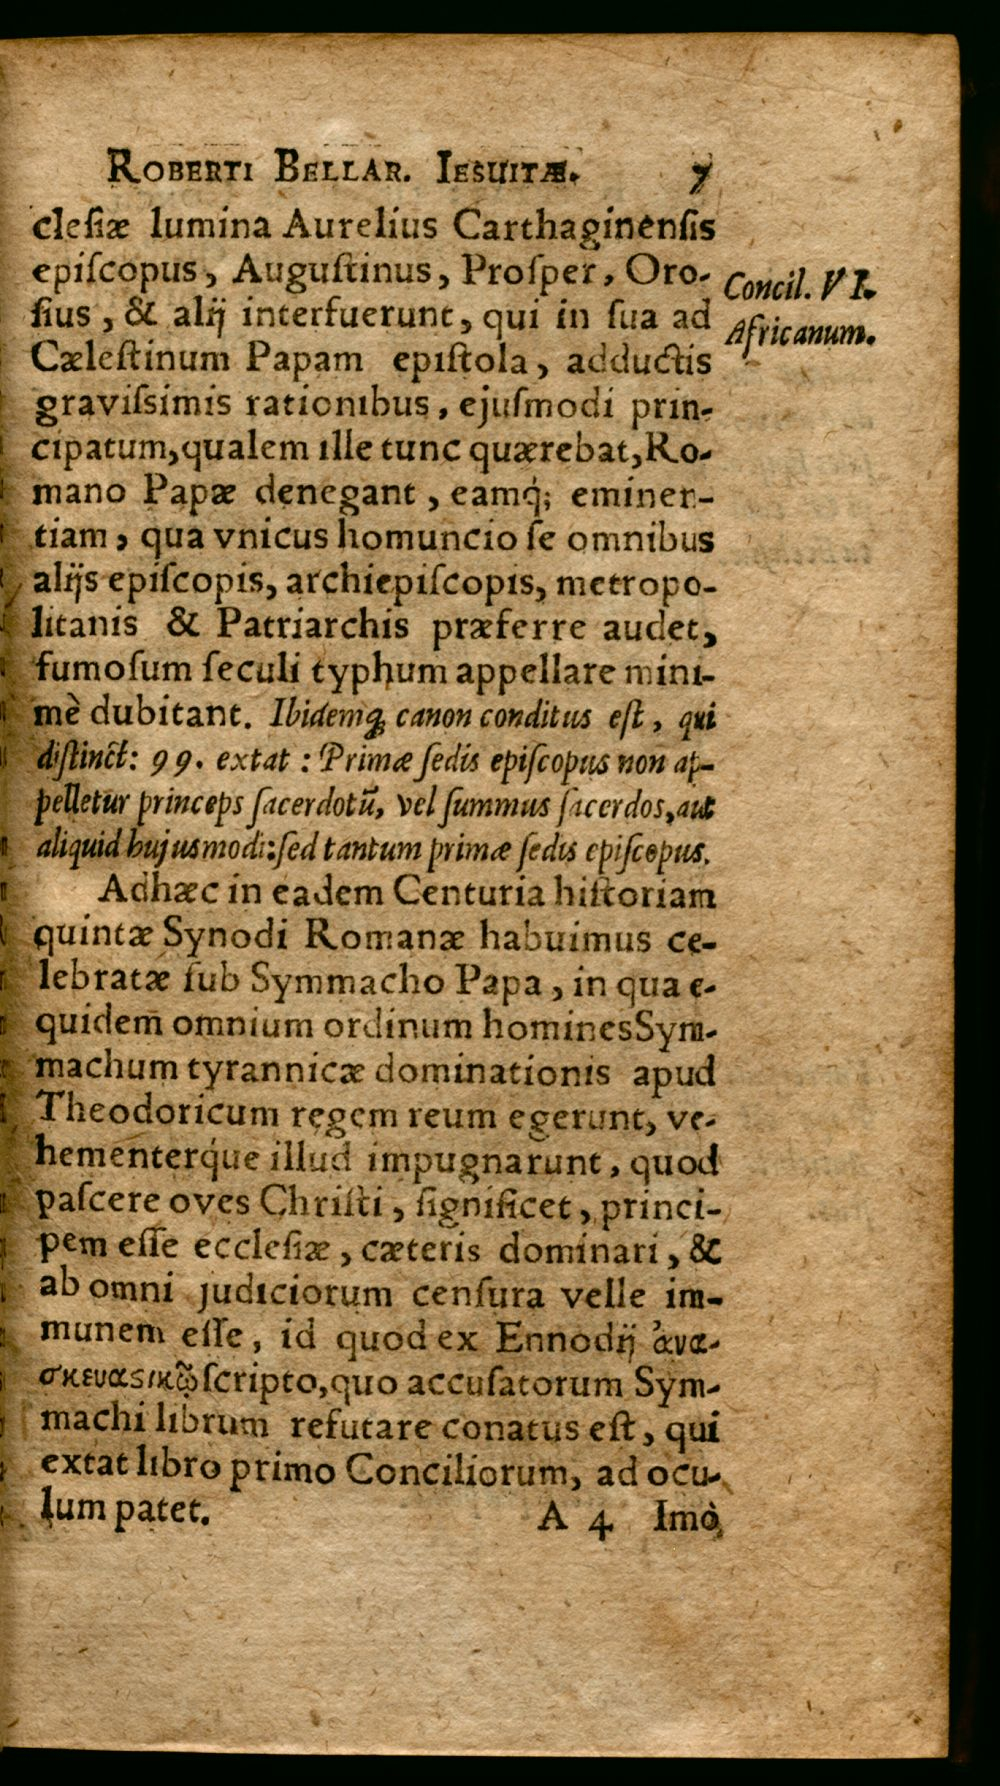 ROBERTI BELLAR. IESUITÆ. 7
cleſiæ lumina Aurelius Carthaginenſis
epiſcopus, Auguſtinus, Proſper, Oro-
ſius, & alij interfuerunt, qui in ſua ad
Cæleſtinum Papam epiſtola, adductis
graviſsimis rationibus, ejuſmodi prin-
cipatum, qualem ille tunc quærebat, Ro-
mano Papæ denegant, eamq́; eminen-
tiam, qua vnicus homuncio ſe omnibus
alijs epiſcopis, archiepiſcopis, metropo-
litanis & Patriarchis præferre audet,
fumoſum ſeculi typhum appellare mini-
mè dubitant. Ibidemq; canon conditus eſt, qui
diſtinct: 99. extat: Primæ ſedis epiſcopus non ap-
pelletur princeps ſacerdotũ, vel ſummus ſacerdos, aut
aliquid hujusmodi: ſed tantum primæ ſedis epiſcopus.
Concil. VI.
Africanum.
Adhæc in eadem Centuria hiſtoriam
quintæ Synodi Romanæ habuimus ce-
lebratæ ſub Symmacho Papa, in qua e-
quidem omnium ordinum homines Sym-
machum tyrannicæ dominationis apud
Theodoricum regem reum egerunt, ve-
hementerq́ue illud impugnarunt, quod
paſcere oves Chriſti, ſignificet, princi-
pem eſſe eccleſiæ, cæteris dominari, &
ab omni judiciorum cenſura velle im-
munem eſſe, id quod ex Ennodij ἀνα-
σκευαϛικῷ ſcripto, quo accuſatorum Sym-
machi librum refutare conatus eſt, qui
extat libro primo Conciliorum, ad ocu-
lum patet.
A 4 Imò